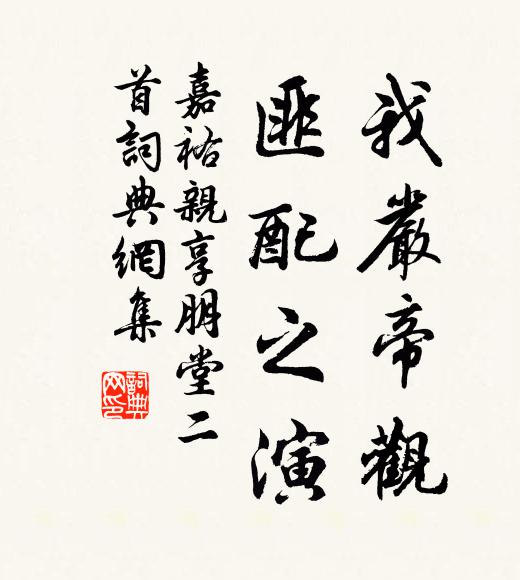 我嚴帝觀
匪配之演
嘉祐親享明堂二
首詞典網集
詞典網印